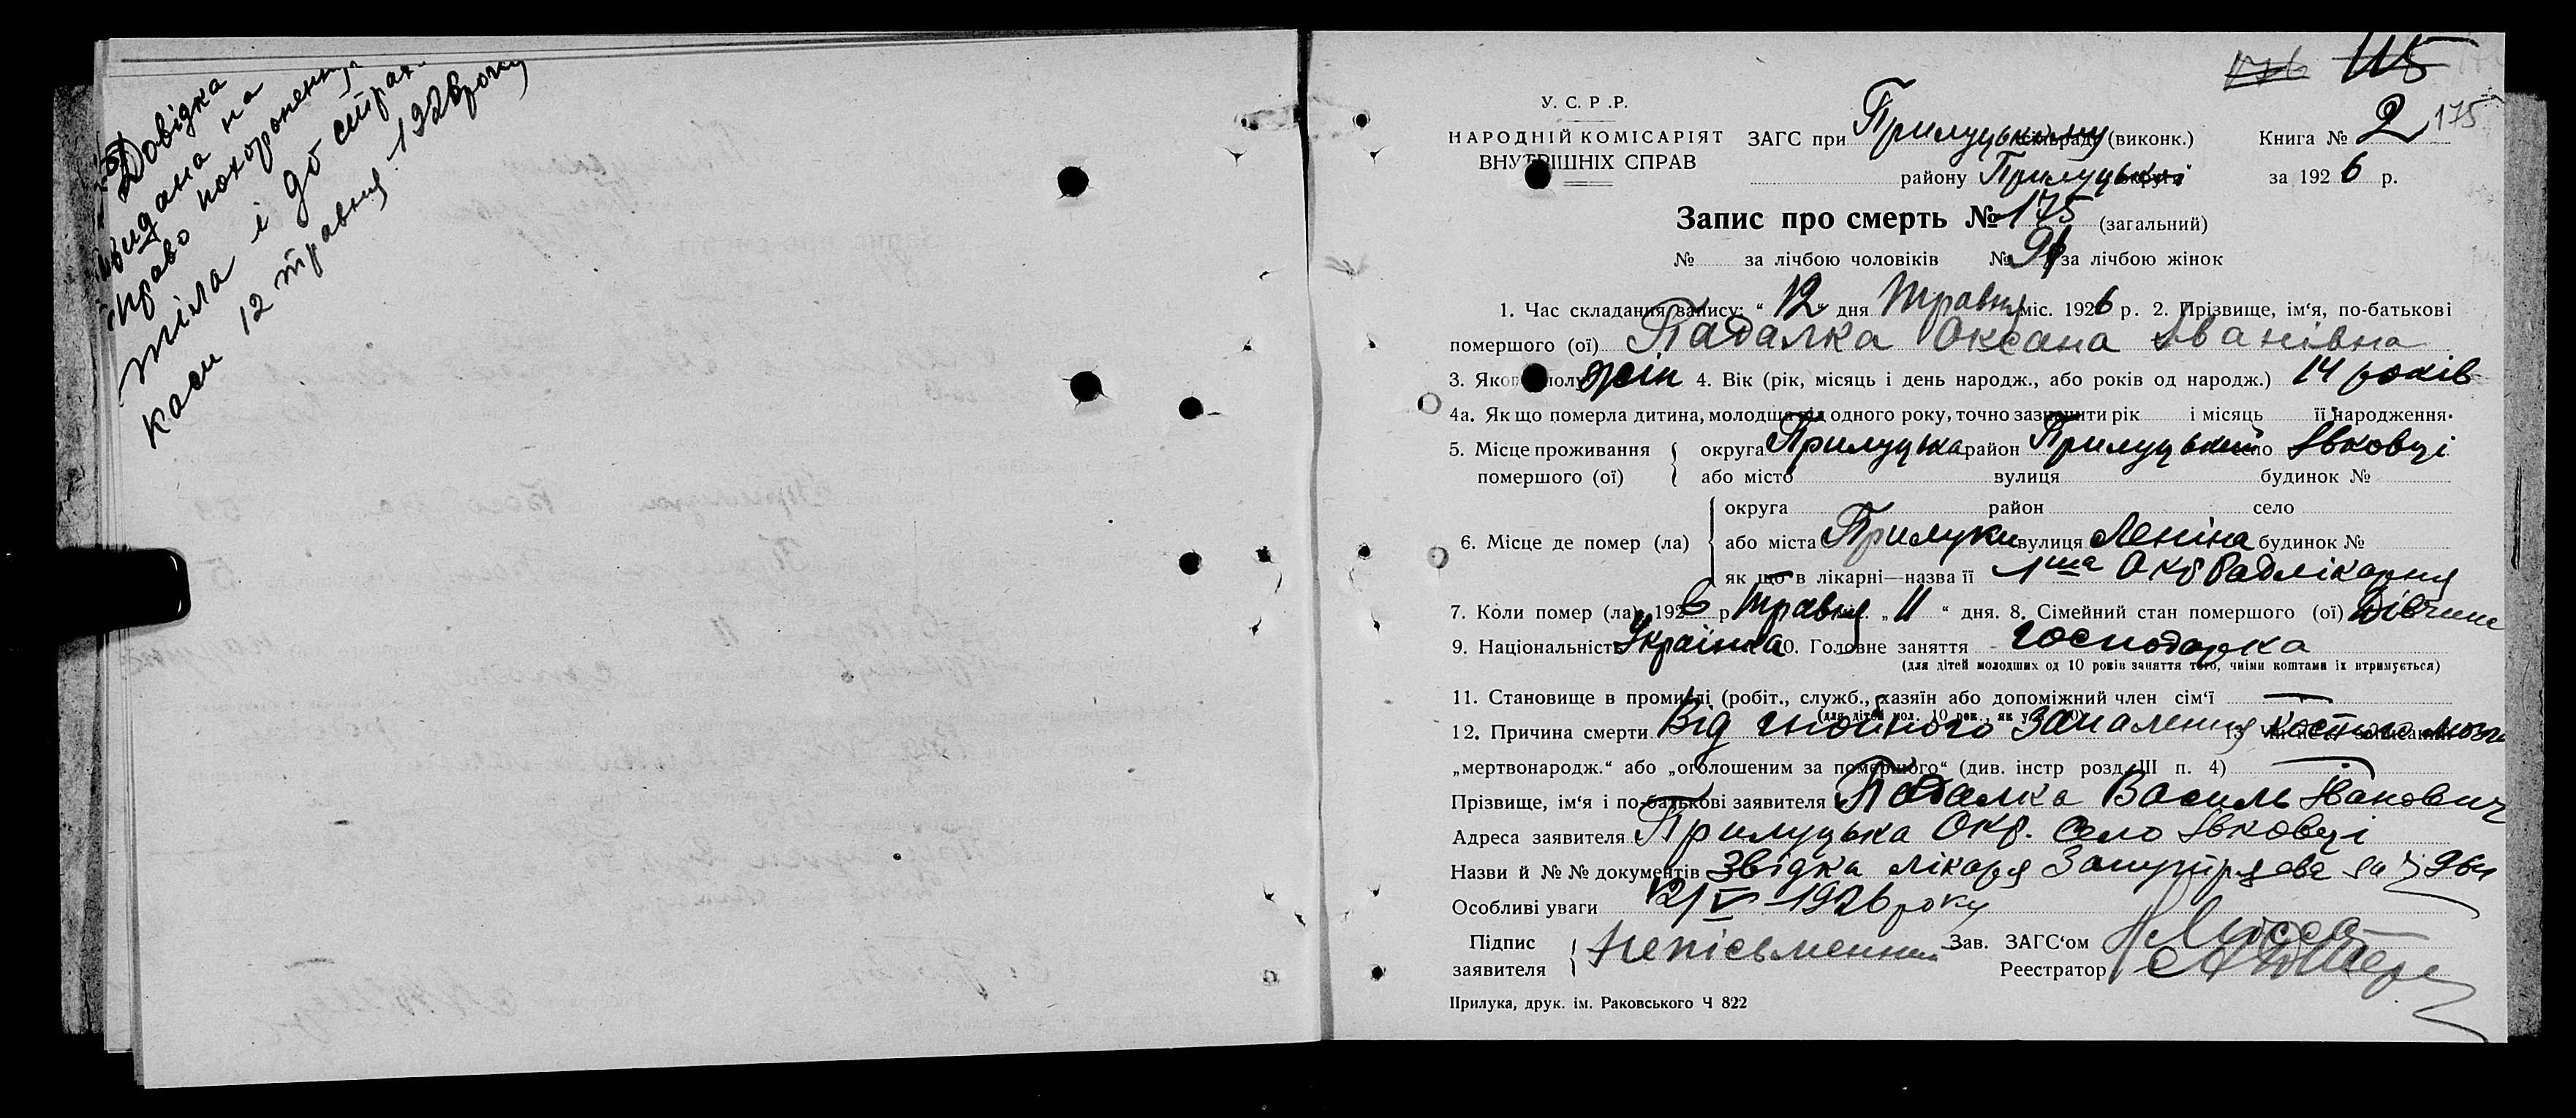 Довідка
видана на
право похоронення
тіла і до справ.
каси 12 травня 1926 року
115
175
У. С. Р. Р.
НАРОДНІЙ КОМІСАРІЯТ
ВНУТРІШНІХ СПРАВ
ЗАГС при Прилуцькому (виконк.)
району Прилуцький
Книга № 2
за 1926 р.
Запис про смерть № 175 (загальний)
№ за лічбою чоловіків № 91 за лічбою жінок
1. Час складання запису: “ 12 “ дня Травня міс. 1926 р. 2. Прізвище, ім‘я, по-батькові
помершого (ої) Падалка Оксана Іванівна
3. Якого полу жін 4. Вік (рік, місяць і день народж., або років од народж.) 14 років
4а. Як що померла дитина, молодша від одного року, точно зазначити рік і місяць її народження.
5. Місце проживання округа Прилуцька район Прилуцький село Івковці
помершого (ої) або місто вулиця будинок №
округа район село
6. Місце де помер (ла) або міста Прилуки вулиця Леніна будинок №
як що в лікарні—назва її 1ша Окр Радлікарня
7. Коли помер (ла) 1926 р. Травня „ 11 “ дня. 8. Сімейний стан помершого (ої) Дівчина
9. Національність Українка 10. Головне заняття господарка
(для дітей молодших од 10 років заняття того, чиїми коштами їх втримується)
11. Становище в промислі (робіт., служб., хазяїн або допоміжний член сім‘ї —
12. Причина смерти Від гнойного запалення костного мозгу
„мертвонародж.“ або „оголошеним за помершого“ (див. інстр розд. III п. 4) —
Прізвище, ім‘я і по-батькові заявителя Падалка Василь Іванович
Адреса заявителя Прилуцька Окр. село Івковці
Назви й №№ документів Звідка лікаря за ч
Особливі уваги 12/V–1926 року
Підпис заявителя Непісьменний Зав. ЗАГС‘ом
Реестратор
Прилука, друк. ім. Раковського Ч 822